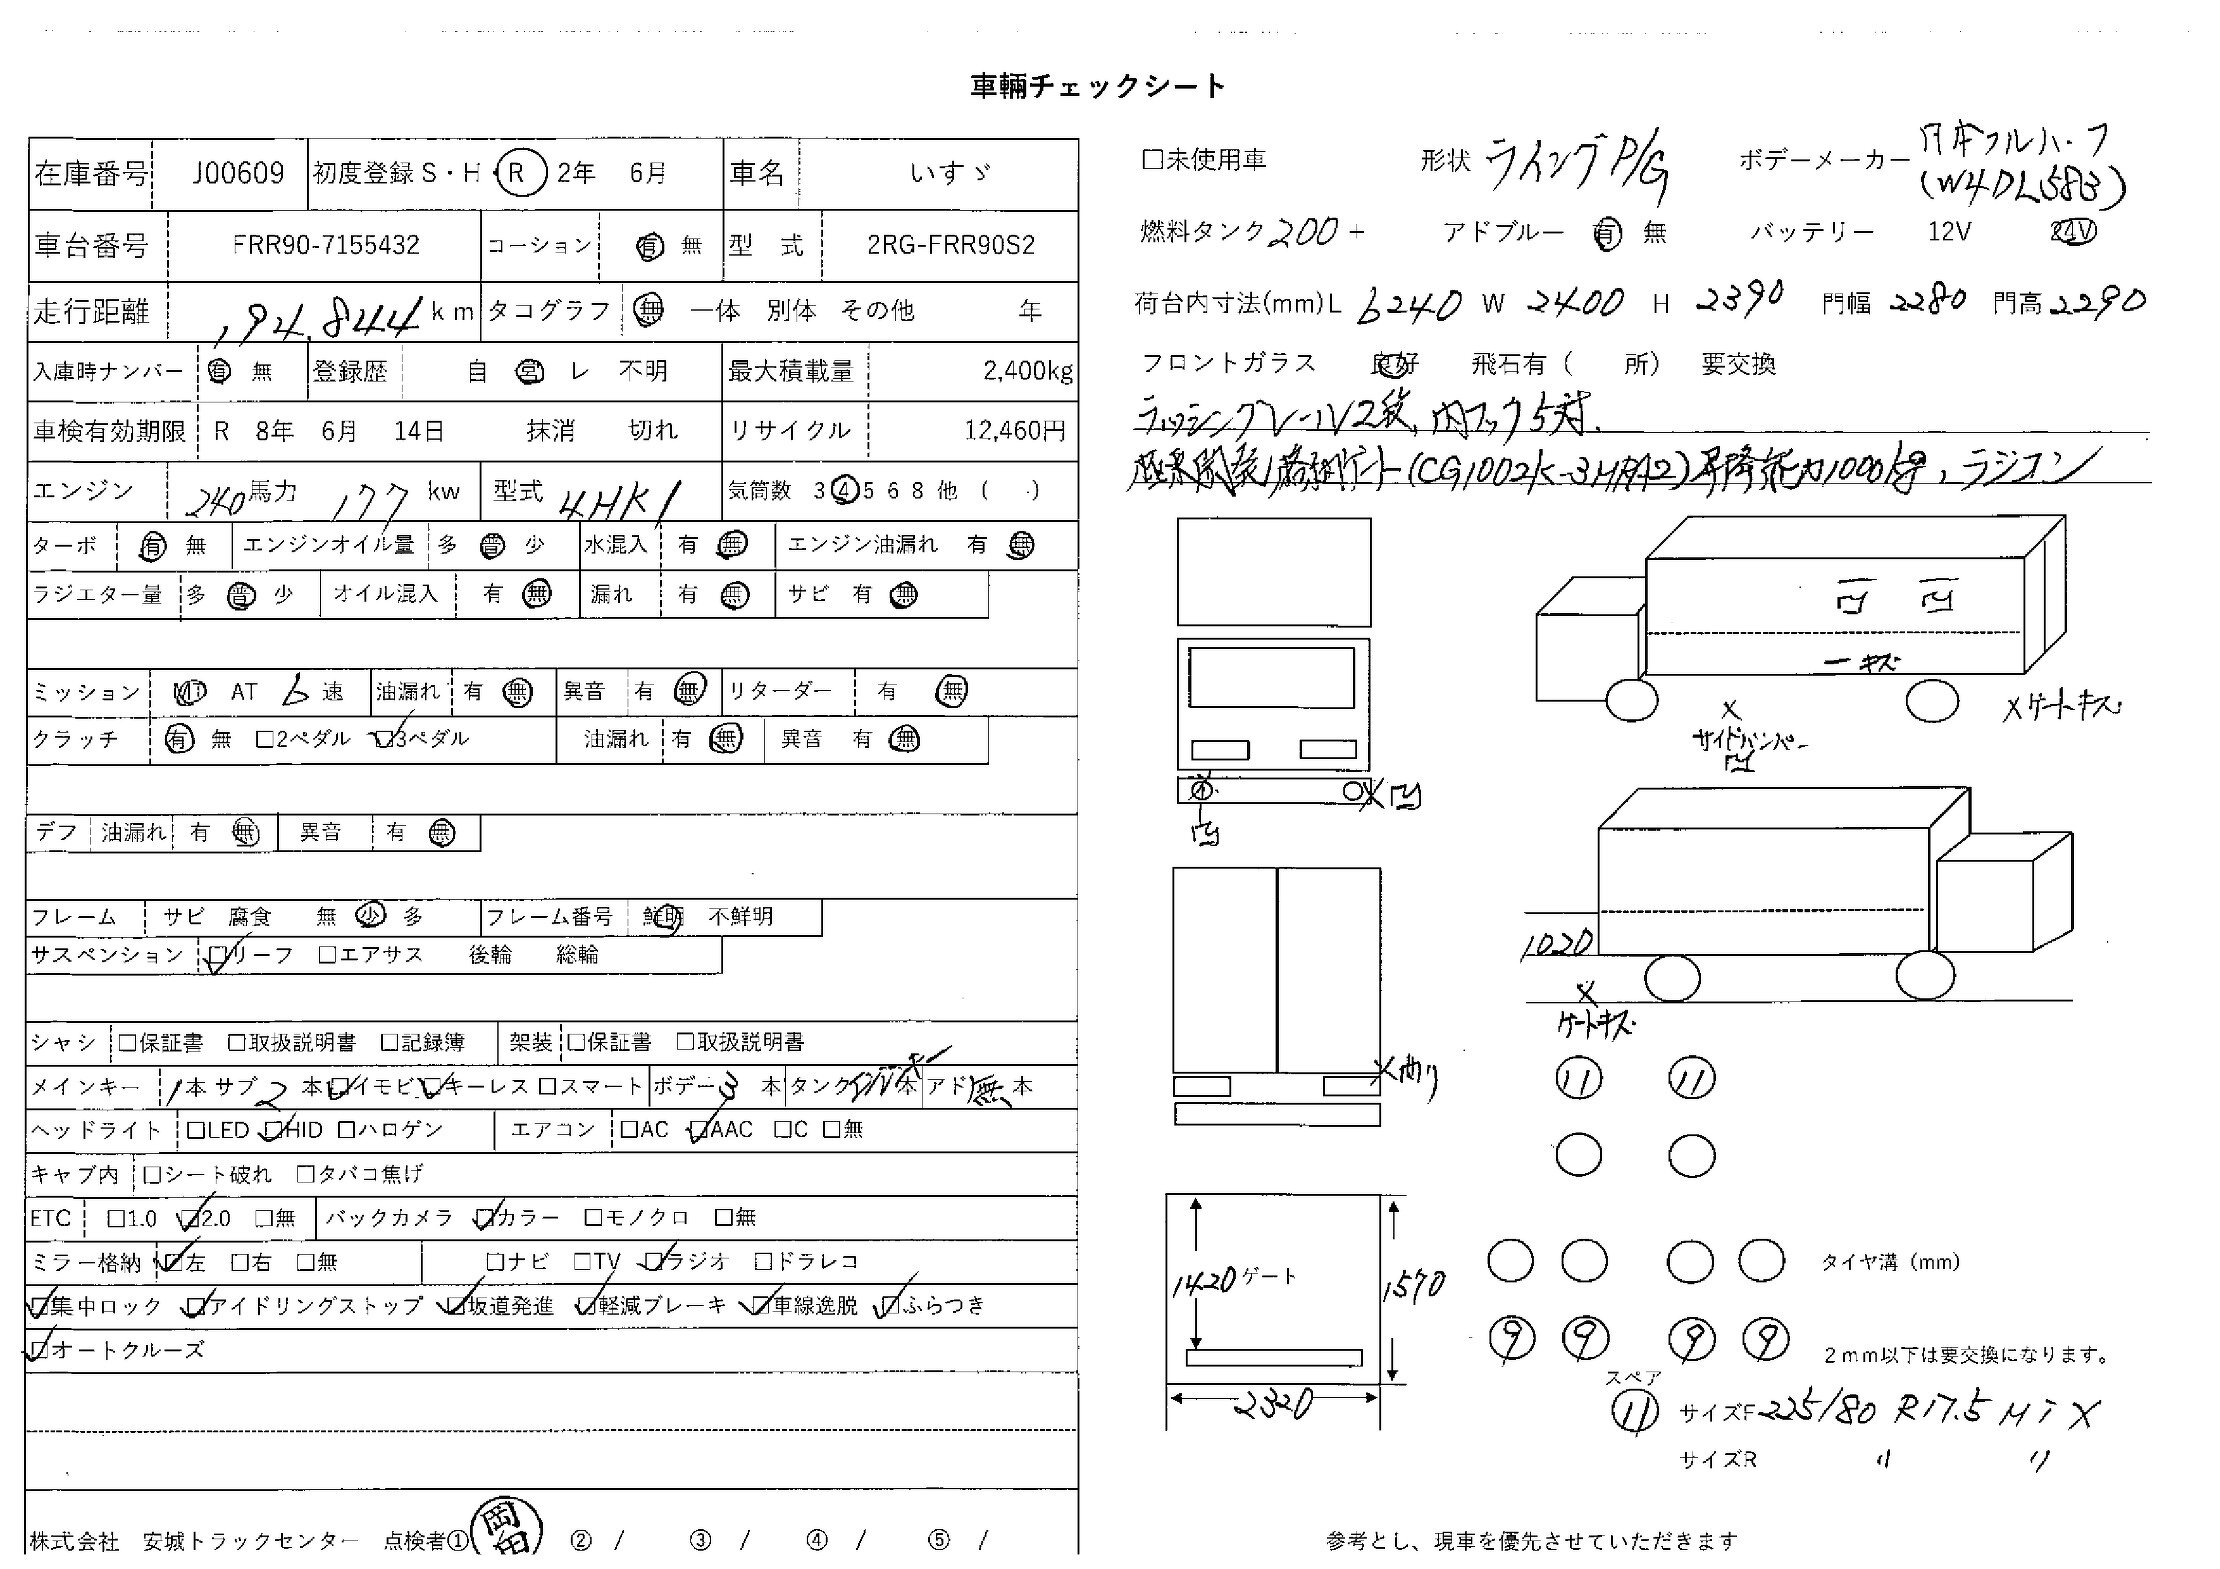 車輛チェックシート
在庫番号 J00609 初度登録 S・H・R 2年 6月 車名 いすゞ
車台番号 FRR90-7155432 コーション 有 無 型 式 2RG-FRR90S2
走行距離 194,844 km タコグラフ 無 一体 別体 その他 年
入庫時ナンバー 有 無 登録歴 自 営 レ 不明 最大積載量 2,400kg
車検有効期限 R 8年 6月 14日 抹消 切れ リサイクル 12,460円
エンジン 240馬力 177 kw 型式 4HK1 気筒数 3 4 5 6 8 他 ( )
ターボ 有 無 エンジンオイル量 多 普 少 水混入 有 無 エンジン油漏れ 有 無
ラジエター量 多 普 少 オイル混入 有 無 漏れ 有 無 サビ 有 無
ミッション MT AT 6 速 油漏れ 有 無 異音 有 無 リターダー 有 無
クラッチ 有 無 □2ペダル ☑3ペダル 油漏れ 有 無 異音 有 無
デフ 油漏れ 有 無 異音 有 無
フレーム サビ 腐食 無 少 多 フレーム番号 鮮明 不鮮明
サスペンション ☑リーフ □エアサス 後輪 総輪
シャシ □保証書 □取扱説明書 □記録簿 架装 □保証書 □取扱説明書
メインキー 1本 サブ 2 本 ☑イモビ ☑キーレス □スマート ボデー 3 本 タンク 本 アド 無 本
ヘッドライト □LED ☑HID □ハロゲン エアコン □AC ☑AAC □C □無
キャブ内 □シート破れ □タバコ焦げ
ETC □1.0 ☑2.0 □無 バックカメラ ☑カラー □モノクロ □無
ミラー格納 ☑左 □右 □無 □ナビ □TV ☑ラジオ □ドラレコ
☑集中ロック ☑アイドリングストップ ☑坂道発進 ☑軽減ブレーキ ☑車線逸脱 ☑ふらつき
☑オートクルーズ
株式会社 安城トラックセンター 点検者① ② / ③ / ④ / ⑤ /
□未使用車 形状 ウイングP/G ボデーメーカー 日本フルハーフ
(W4DL583)
燃料タンク 200 + アドブルー 有 無 バッテリー 12V 24V
荷台内寸法(mm) L 6240 W 2400 H 2390 門幅 2280 門高 2290
フロントガラス 良好 飛石有 ( 所) 要交換
ラッシングレール2段, 内フック5対.
(CG1002K-3HRA2) 昇降能力1000kg, ラジコン
凹 凹
ー キズ
× ゲートキズ
×
サイドバンパー
凹
× 凹
凹
1020
×
ゲートキズ
11 11
1420 ゲート 1570
タイヤ溝 (mm)
9 9 9 9
2mm以下は要交換になります。
2320
スペア
11 サイズF 225/80 R17.5 MIX
サイズR 〃 〃
参考とし、現車を優先させていただきます